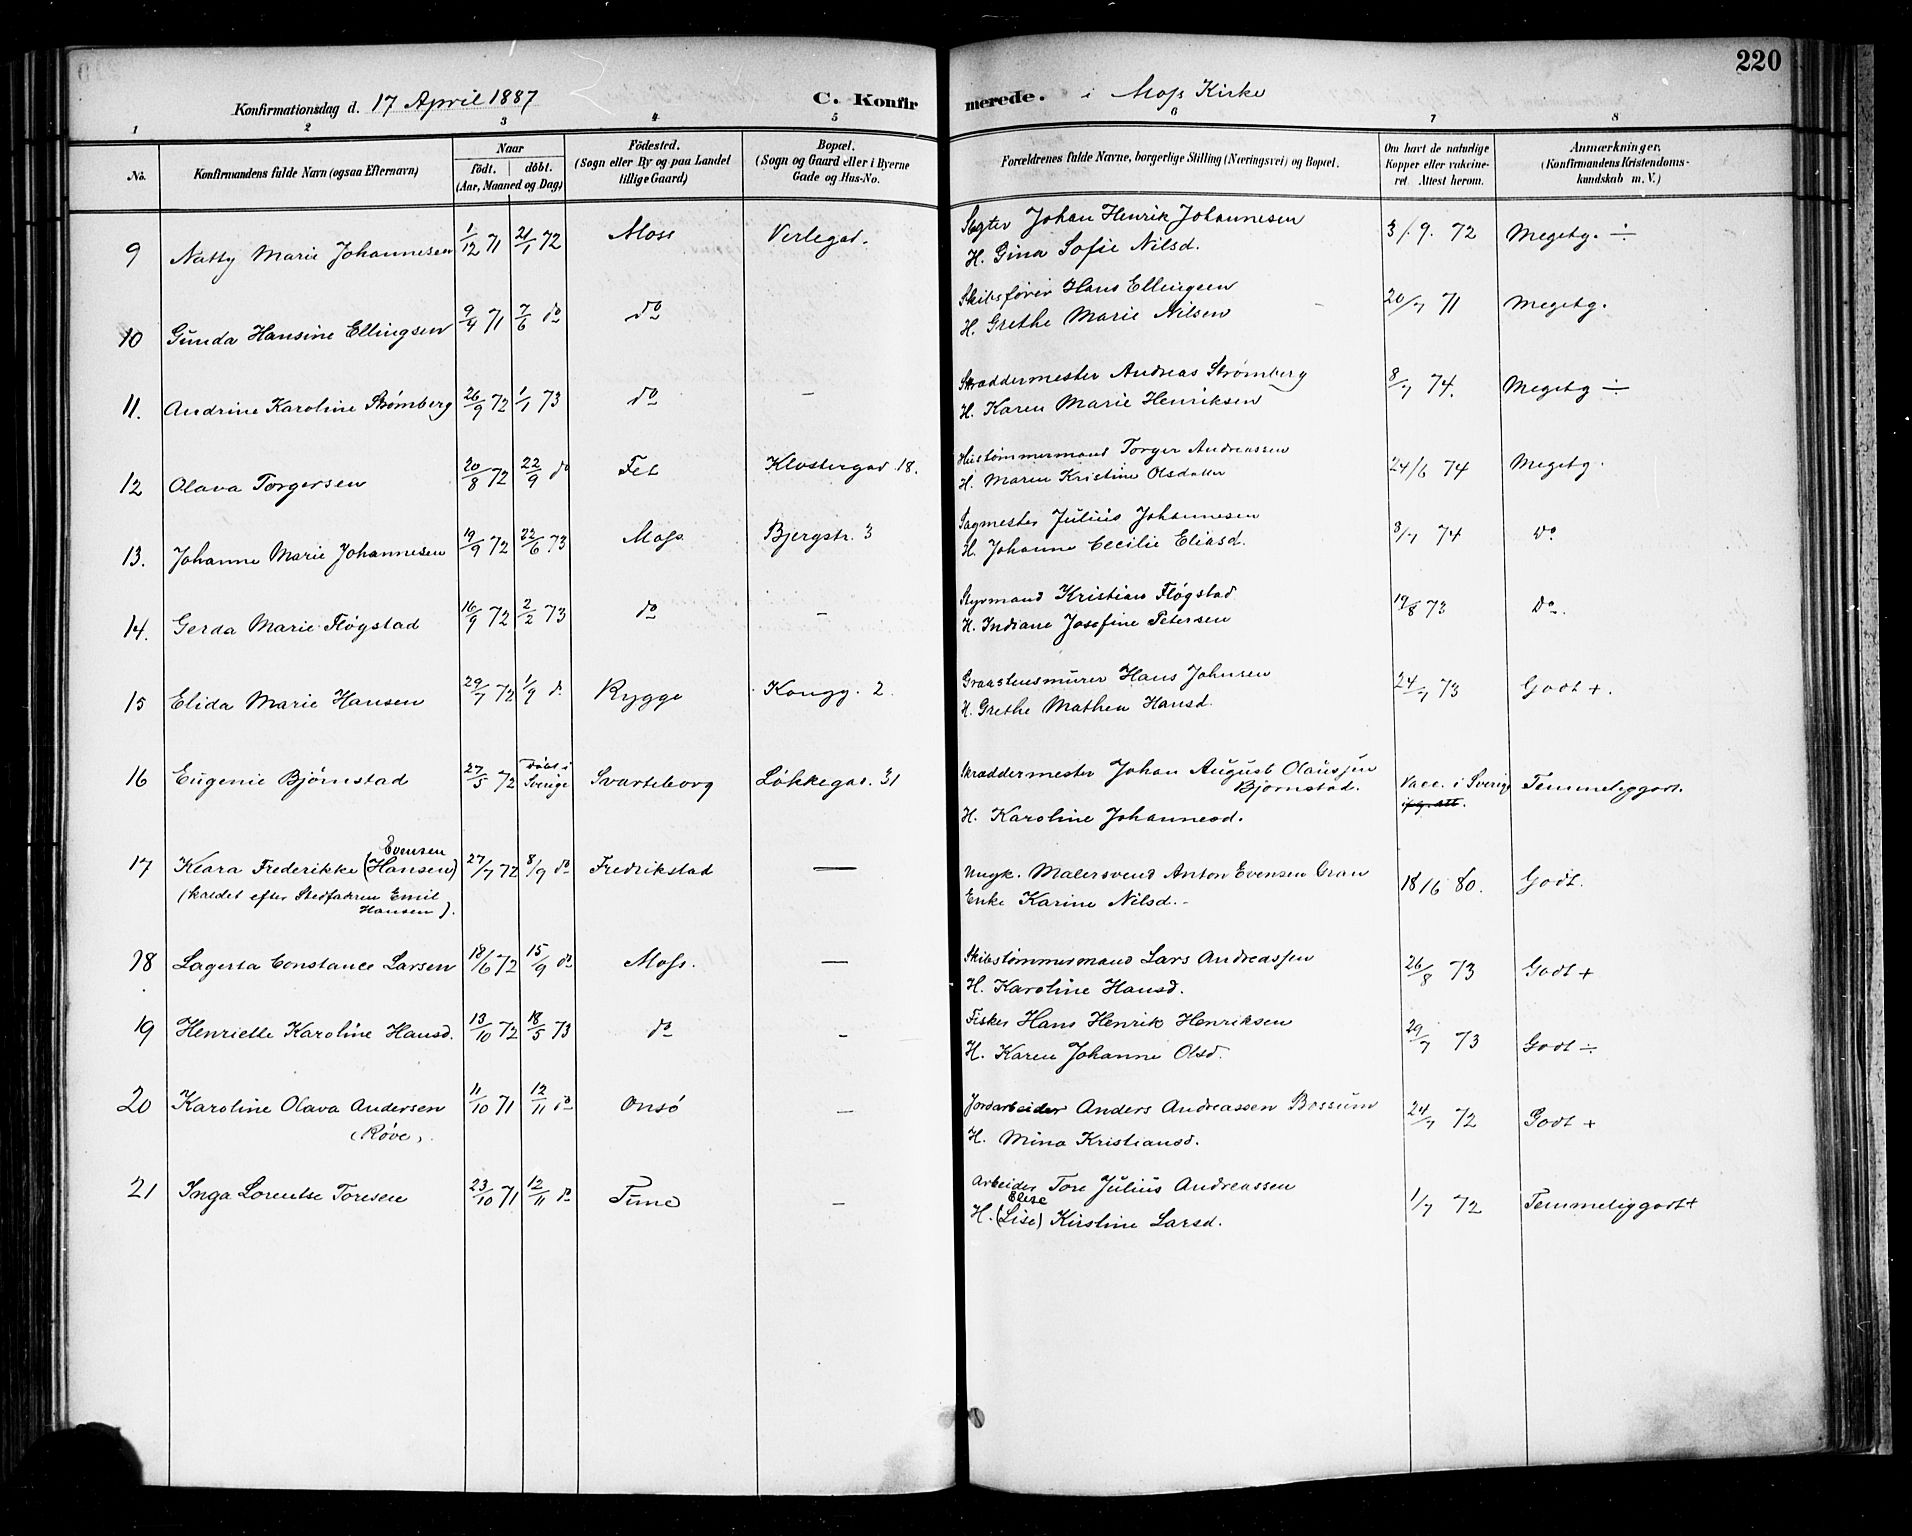 220
Konfirmationsdag d. 17 April 1887 C. Konfirmerede. i Moss Kirke
1 2 3 4 5 6 7 8
No. Konfirmandens fulde Navn (ogsaa Efternavn) Naar födt. döbt. (Aar, Maaned og Dag) Födested. (Sogn eller By og paa Landet tillige Gaard) Bopæl. (Sogn og Gaard eller i Byerne Gade og Hus-No. Forældrenes fulde Navne, borgerlige Stilling (Næringsvei) og Bopæl. Om havt de naturlige Kopper eller vakcineret. Attest herom. Anmærkninger, (Konfirmandens Kristendomskundskab m. V.)
9 Natty Marie Johannesen 1/12 71 21/1 72 Moss Verlegad. Johan Henrik Johannesen 3/9. 72 Megetg. ÷
H. Gina Sofie Nilsd.
10 Gunda Hansine Ellingsen 9/4 71 7/6 do do Skibsfører Hans Ellingsen 20/7 71 Megetg.
H. Grethe Marie Nilsen
11. Andrine Karoline Strømberg 26/9 72 1/1 73 do – Skræddermester Andreas Strømberg 8/7 74. Megetg ÷
H. Karen Marie Henriksen
12 Olava Torgersen 20/8 72 22/9 do Fet Klostergad 18. Hustømmermand Torger Andreassen 24/6 74 Megetg.
H. Maren Kristine Olsdatter
13. Johanne Marie Johannesen 19/9 72 22/6 73 Moss Bjergstr. 3 Sagmester Julius Johannesen 3/7 74 Do
H. Johanne Cecilie Eliasd.
14. Gerda Marie Fløgstad 16/9 72 2/2 73 do – Styrmand Kristian Fløgstad 19/8 73 Do.
H. Indiane Josefine Petersen
15 Elida Marie Hansen 29/7 72 1/9 do Rygge Kongg. 2. Graastensmurer Hans Johnsen 24/7 73 Godt +.
H. Grethe Mathea Hansd.
16 Eugenie Bjørnstad 27/5 72 Døbt i Sverige Svarteborg Løkkegad. 31 Skræddermester Johan August Olaussen Bjørnstad. Vacc. i Sverige Temmeliggodt.
H. Karoline Johannesd.
17 Klara Frederikke Evensen (Hansen) 27/7 72 8/9 do Fredrikstad — Ungk. Malersvend Anton Evensen Gran 18/6 80. Godt.
(kaldet efter Stedfadren Emil Hansen). Enke Karine Nilsd.
18 Lagerta Constance Larsen 18/6 72 15/9 do Moss. — Skibstømmermand Lars Andreassen 26/8 73 Godt +
H. Karoline Hansd.
19 Henriette Karoline Hansd. 13/10 72 18/5 73 do – Fisker Hans Henrik Henriksen 29/7 73 Godt ÷
H. Karen Johanne Olsd.
20 Karoline Olava Andersen 11/10 71 12/11 do Onsö – Jordarbeider Anders Andreassen Bossum 24/7 72 Godt +
(Røve). H. Mina Kristiansd.
21 Inga Lorentse Toresen 23/10 71 12/11 do Tune – Arbeider Tore Julius Andreassen 1/7 72 Temmeliggodt +
H. Elise (Lise) Kirstine Larsd.